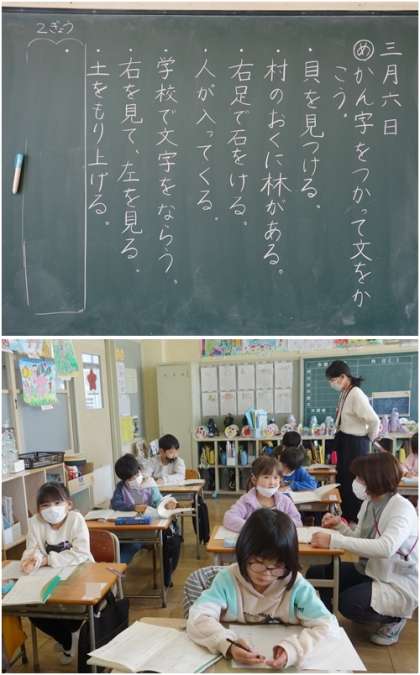 三月六日
めかん字をつかって文をか
こう。
・貝を見つける。
・村のおくに林がある。
・右足で石をける。
・人が入ってくる。
・学校で文字をならう。
・右を見て、左を見る。
・土をもり上げる。
・
2ぎょう